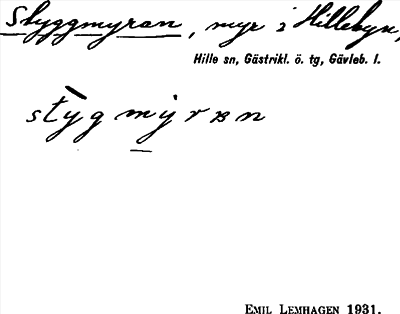 Styggmyran, myr i Hillebyn,
Hille sn, Gästrikl. ö. tg, Gävleb. l.
stỳg mẏrɐn
EMIL LEMHAGEN 1931.